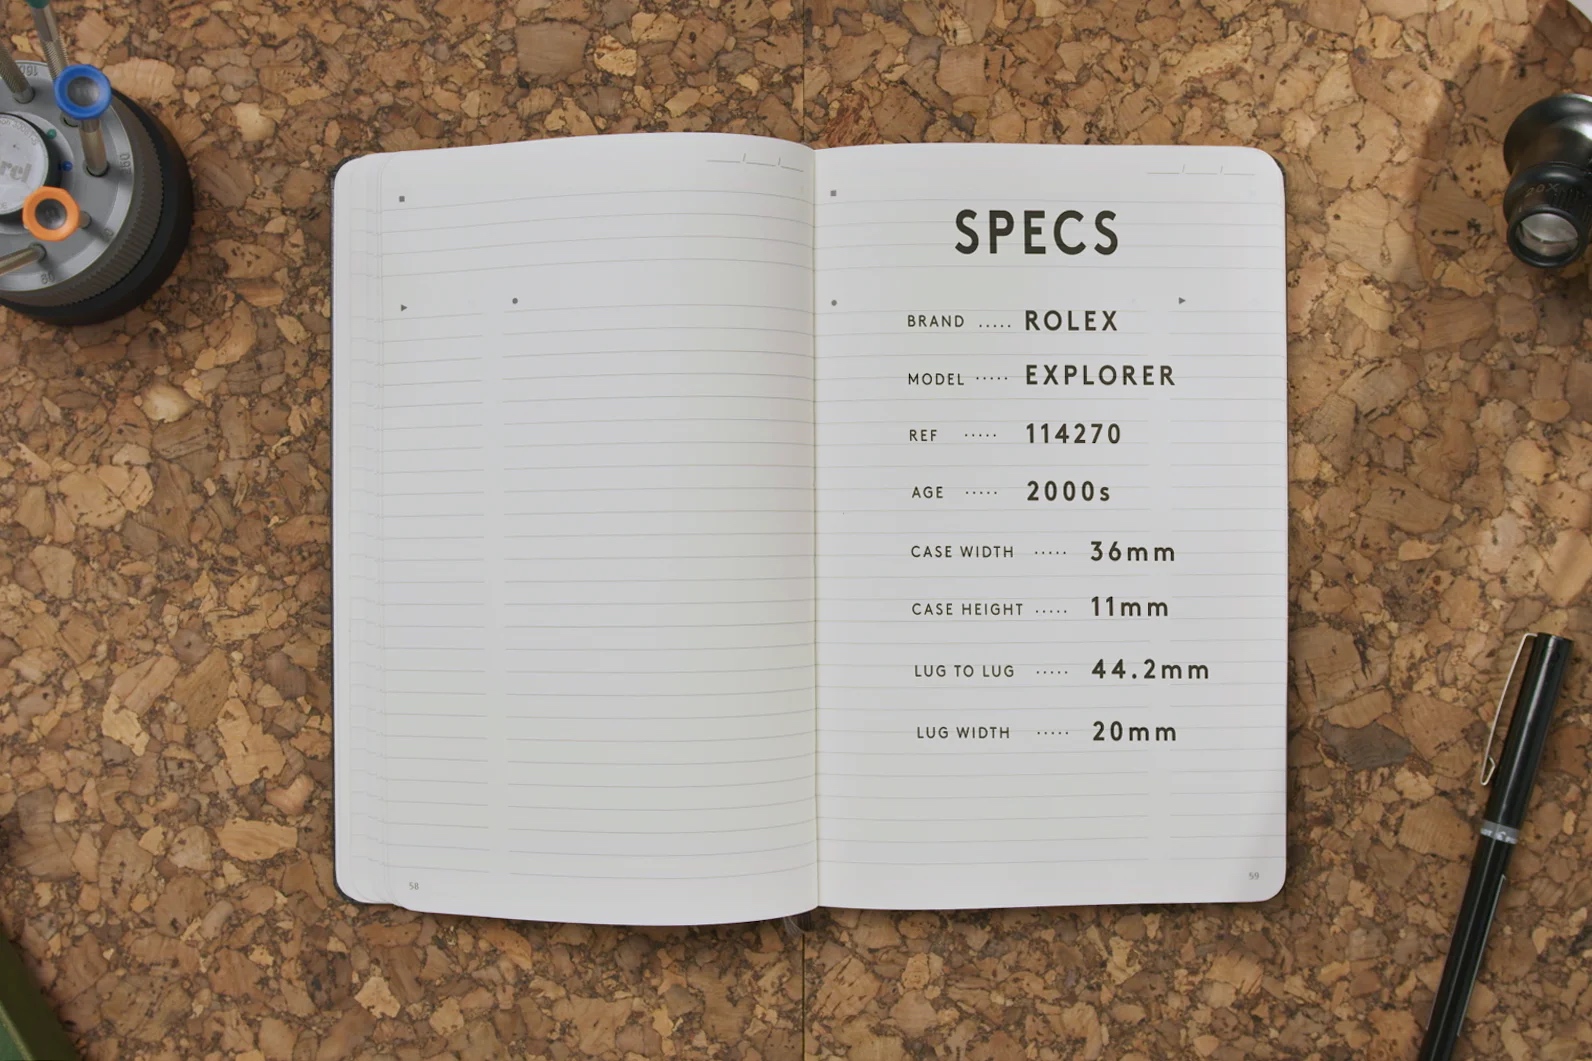 SPECS
BRAND ..... ROLEX
MODEL ..... EXPLORER
REF ..... 114270
AGE ..... 2000s
CASE WIDTH ..... 36mm
CASE HEIGHT ..... 11mm
LUG TO LUG ..... 44.2mm
LUG WIDTH ..... 20mm
58
59